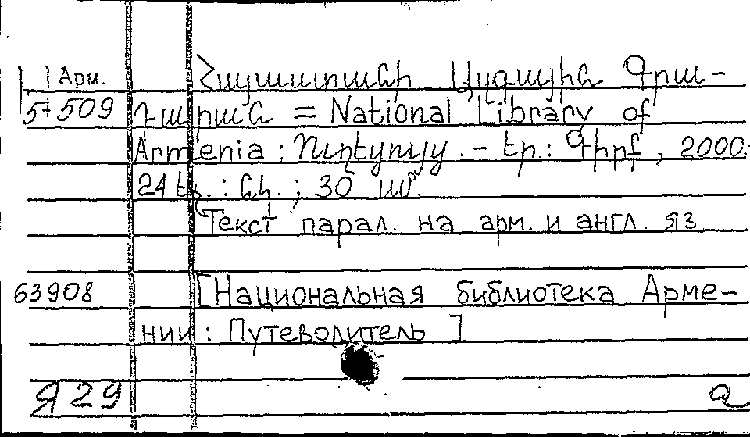 Арм. Հայաստանի Ազգային Գրա-
5+509 դարան = National Library of
Armenia : Ուղեցույց. – Եր.: Գիրք, 2000.
24 էջ. : նկ. ; 30 սմ
Текст парал. на арм. и англ. яз
63908 [Национальная библиотека Арме-
нии : Путеводитель]
Я29